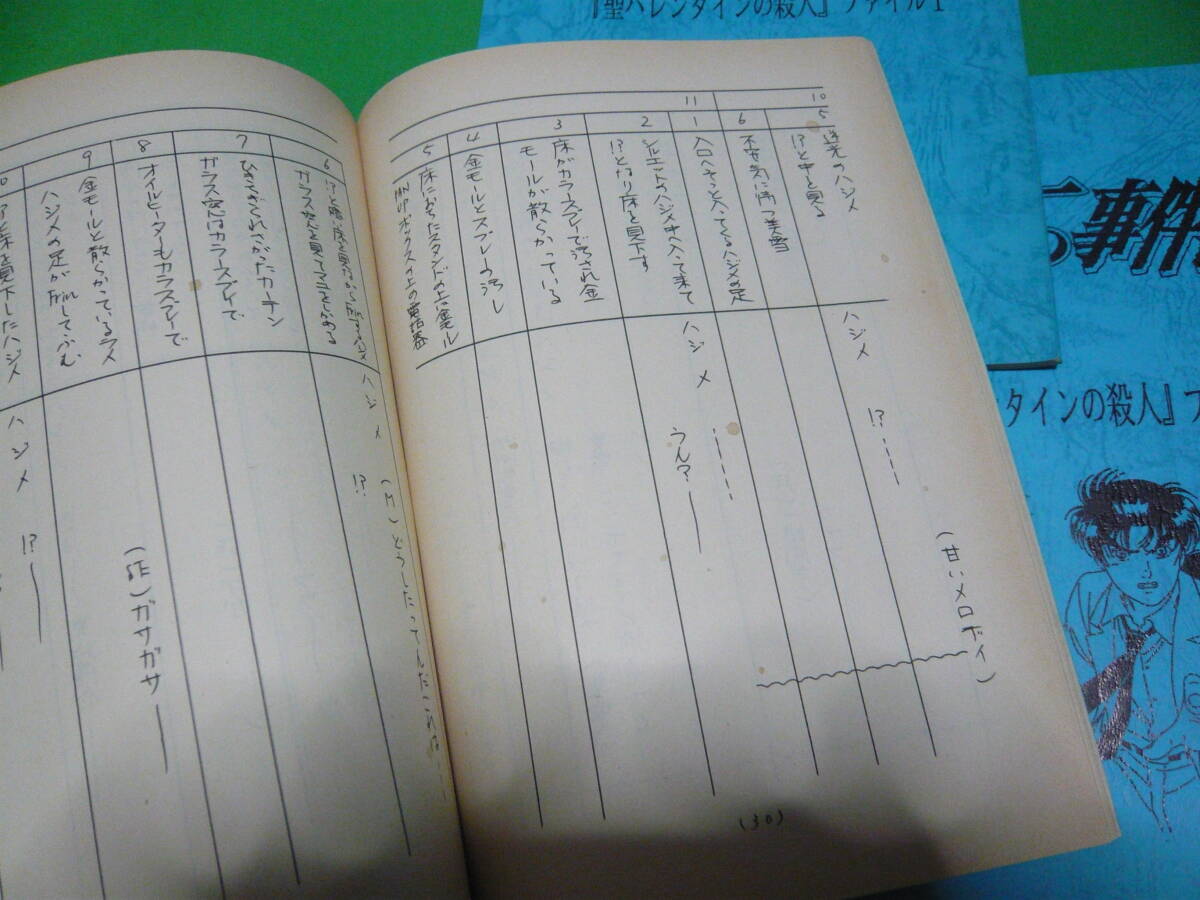 『聖バレンタインの殺人』ファイル1
事件
タインの殺人』フ
10
5
逆光のハジメ
!?と中を見る
ハジメ !?……
(甘いメロディ)
6
不安気に待つ美雪
11
1
入口へそっと入ってくるハジメの足
……
2
シルエットのハジメ中へ入って来て
!?となり床を見下す
ハジメ うん?――
3
床がカラースプレーで汚され金
モールが散らかっている
4
金モールとスプレーの汚し
5
床におちたスタンドの上に金モール
ボックスの上の電話器
(30)
6
ハジメ !?
(M)どうしたってんだこれは……
7
ひきさぐれたカーテン
ガラス窓はカラースプレーで
8
オイルヒーターもカラースプレーで
9
金モールと散らかっているラメ
ハジメの足がFrinしてふむ
(SE)ガサガサ――
を見下したハジメ
ハジメ !?――